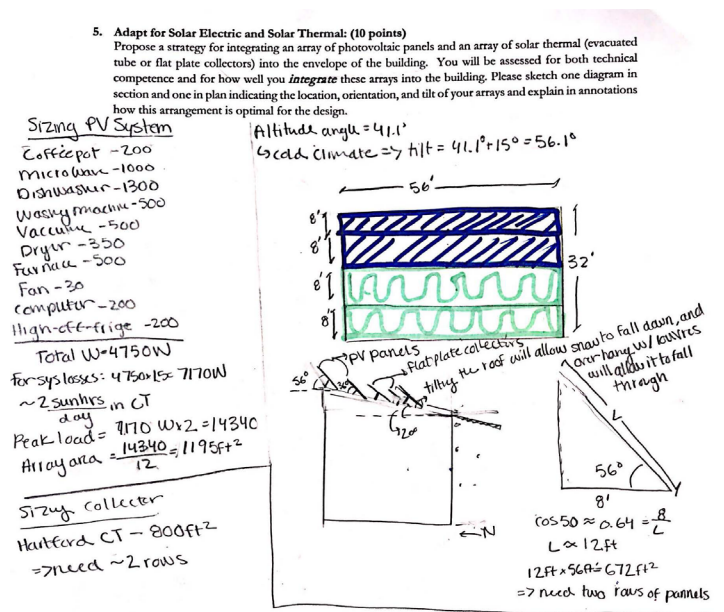 5. Adapt for Solar Electric and Solar Thermal: (10 points)
Propose a strategy for integrating an array of photovoltaic panels and an array of solar thermal (evacuated
tube or flat plate collectors) into the envelope of the building. You will be assessed for both technical
competence and for how well you integrate these arrays into the building. Please sketch one diagram in
section and one in plan indicating the location, orientation, and tilt of your arrays and explain in annotations
how this arrangement is optimal for the design.
Sizing PV System
Coffeepot -200
Microwave -1000
Dishwasher -1300
Washing machine -500
Vaccuum -500
Dryer -350
Furnace -500
Fan -30
Computer -200
High-eff-frige -200
Total W=4750W
For sys losses: 4750x1.5= 7170W
~2 sunhrs in CT
day
Peak load= 7170 Wx2=14340
Array area = 14340 = 1195ft²
12
Sizing Collector
Hartford CT - 800ft²
=>need ~2 rows
Altitude angle = 41.1°
↳ cold climate => tilt = 41.1°+15° = 56.1°
56'
8'
8'
8'
8'
32'
PV panels
Flat plate collectors
tilting the roof will allow snow to fall down, and
overhang w/ louvres
will allow it to fall
through
56°
20°
←N
L
56°
8'
cos50 ≈ 0.64 = 8
L
L ≈ 12ft
12ft x 56ft = 672ft²
=> need two rows of pannels